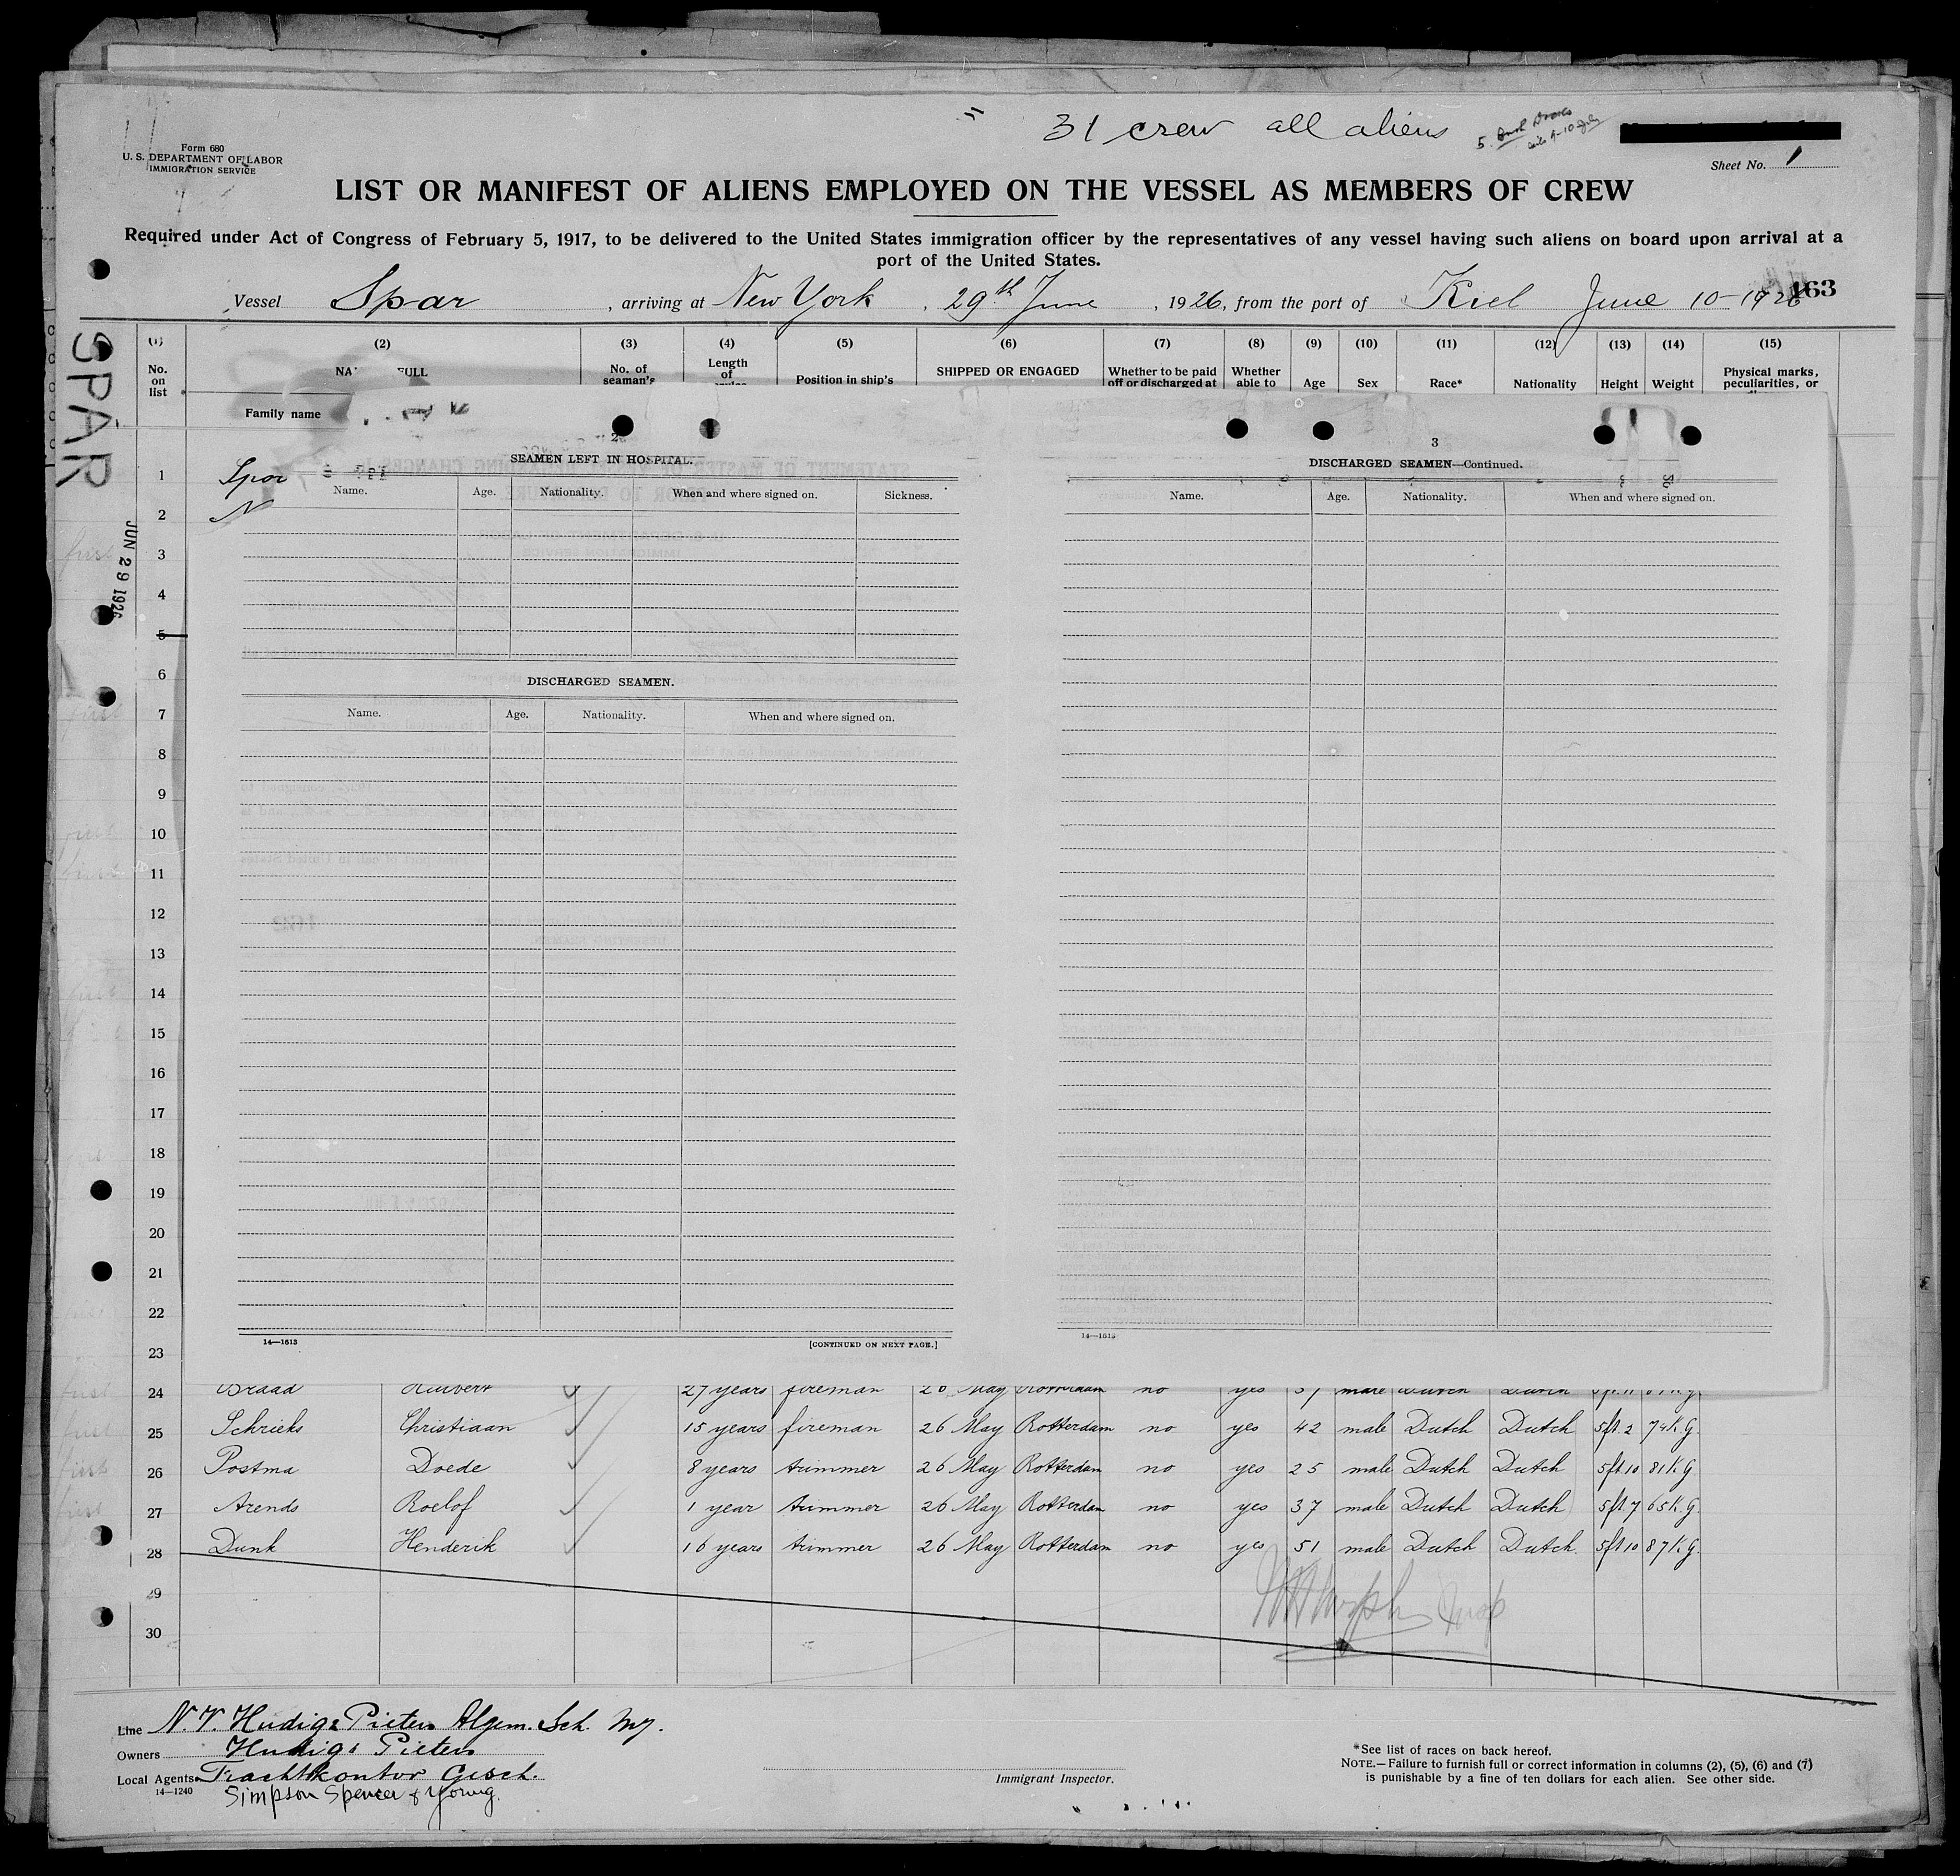 31 crew all aliens
Form 680
U. S. DEPARTMENT OF LABOR
IMMIGRATION SERVICE
Sheet No. 1
LIST OR MANIFEST OF ALIENS EMPLOYED ON THE VESSEL AS MEMBERS OF CREW
Required under Act of Congress of February 5, 1917, to be delivered to the United States immigration officer by the representatives of any vessel having such aliens on board upon arrival at a
port of the United States.
Vessel Spar, arriving at New York, 29th June, 1926, from the port of Kiel June 10-1926
163
SPAR
JUN 29 1926
(1) (2) (3) (4) (5) (6) (7) (8) (9) (10) (11) (12) (13) (14) (15)
No. on list
No. of seaman's
Length of
Position in ship's
SHIPPED OR ENGAGED
Whether to be paid off or discharged at
Whether able to
Age
Sex
Race*
Nationality
Height
Weight
Physical marks, peculiarities, or
Family name
2
SEAMEN LEFT IN HOSPITAL.
Name. Age. Nationality. When and where signed on. Sickness.
DISCHARGED SEAMEN.
Name. Age. Nationality. When and where signed on.
14—1613 [CONTINUED ON NEXT PAGE.]
3
DISCHARGED SEAMEN—Continued.
Name. Age. Nationality. When and where signed on.
14—1613
1
2
3
4
5
6
7
8
9
10
11
12
13
14
15
16
17
18
19
20
21
22
23
24 27 years fireman 26 May Rotterdam no yes 37 male Dutch Dutch
25 Schrieks Christiaan 15 years fireman 26 May Rotterdam no yes 42 male Dutch Dutch 5ft.2 74K.G.
26 Postma Doede 8 years trimmer 26 May Rotterdam no yes 25 male Dutch Dutch 5ft.10 81K.G
27 Arends Roelof 1 year trimmer 26 May Rotterdam no yes 37 male Dutch Dutch 5ft 7 65K.G.
28 Dunk Henderik 16 years trimmer 26 May Rotterdam no yes 51 male Dutch Dutch. 5ft 10 87K.G.
29
30
Line N.V. Hudig & Pieters Algem. Sch. My.
Owners Hudig & Pieters
Local Agents Frachtkontor Gesch.
14—1240
Simpson Spencer & Young.
Immigrant Inspector.
*See list of races on back hereof.
NOTE.—Failure to furnish full or correct information in columns (2), (5), (6) and (7)
is punishable by a fine of ten dollars for each alien. See other side.